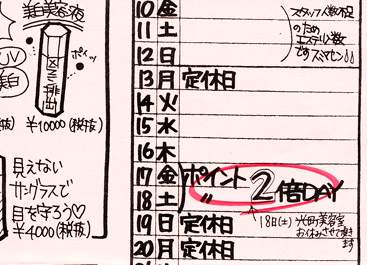 美白美容液
ポイッ
UV
美白
¥10000(税抜)
見えない
サングラスで
目を守ろう♡
¥4000(税抜)
10 金
11 土
12 日
13 月 定休日
14 火
15 水
16 木
17 金 ポイント 2倍DAY
18 土 〃
19 日 定休日
20 月 定休日
スタッフ人数不足
のため
です スミマセン
18日(土)
お休みさせて頂き
ます